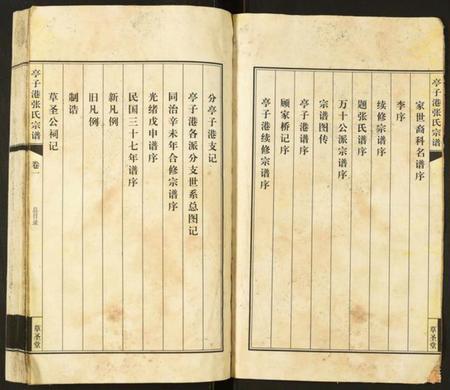 亭子港张氏宗谱
草圣堂
家世裔科名谱序
李序
续修宗谱序
题张氏谱序
万十公派宗谱序
宗谱图传
亭子港谱序
顾家桥记序
亭子港续修宗谱序
分亭子港支记
亭子港各派分支世系总图记
同治辛未年合修宗谱序
光绪戊申谱序
民国三十七年谱序
新凡例
旧凡例
制浩
草圣公祠记
亭子港张氏宗谱
卷一
总目录
草圣堂